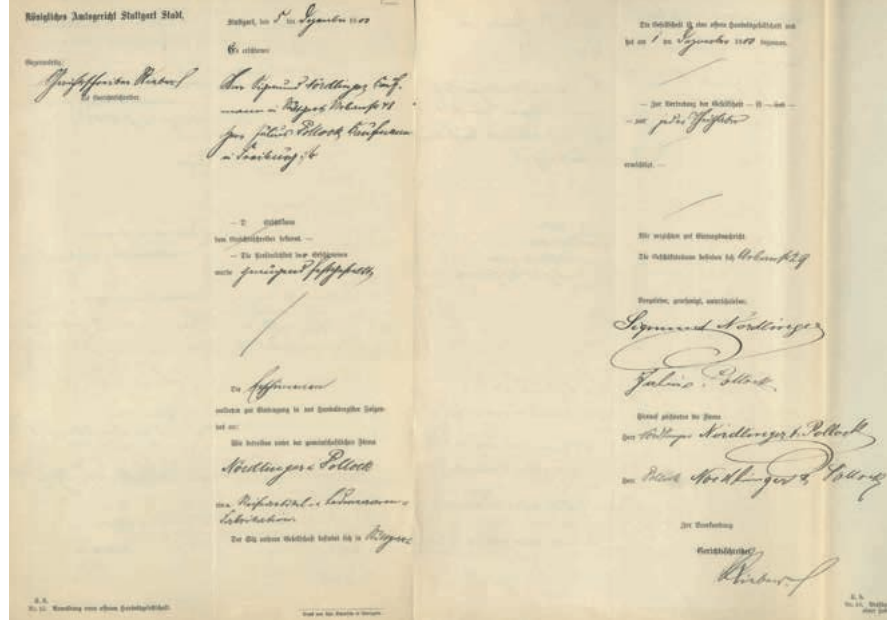 Königliches Amtsgericht Stuttgart Stadt.
Gegenwärtig:
Gerichtsschreiber
als Gerichtsschreiber.
Stuttgart, den 5 ten Dezember 1900
Es erschienen
Herr Sigmund Nördlinger, Kauf-
mann in Stuttgart, Urbanstr 48
Herr Julius Pollock, Kaufmann
in Freiburg i/B
— D Erschienene
dem Gerichtsschreiber bekannt. —
— Die Persönlichkeit der Erschienenen
wurde genügend festgestellt,
Die Erschienenen
meldeten zur Eintragung in das Handelsregister Folgen-
des an:
Wir betreiben unter der gemeinschaftlichen Firma
Nördlinger & Pollock
eine Reiseartikel- u. Lederwaren-
Fabrikation.
Der Sitz unserer Gesellschaft befindet sich in Stuttgart
E. B.
Nr. 15. Anmeldung einer offenen Handelsgesellschaft.
Die Gesellschaft ist eine offene Handelsgesellschaft und
hat am 1 ten Dezember 1900 begonnen.
— Zur Vertretung der Gesellschaft — ist —
— nur jeder Theilhaber
ermächtigt. —
Wir verzichten auf Eintragsnachricht.
Die Geschäftsräume befinden sich Urbanstr 29
Vorgelesen, genehmigt, unterschrieben:
Sigmund Nördlinger
Julius Pollock
Hierauf zeichneten die Firma
Herr Nördlinger Nördlinger & Pollock
Herr Pollock Nördlinger & Pollock
Zur Beurkundung
Gerichtsschreiber
E. B.